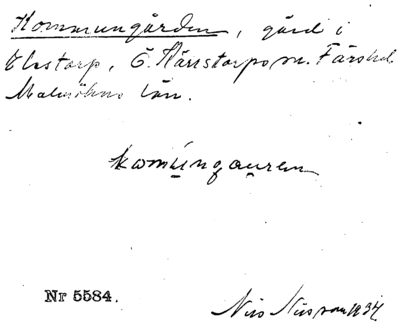 Kommungården, gård i
Elestorp, Ö. Kärrstorps sn. Färs hd.
Malmöhus län.
komungauren
Nr 5584.
Nils Nilsson 1934